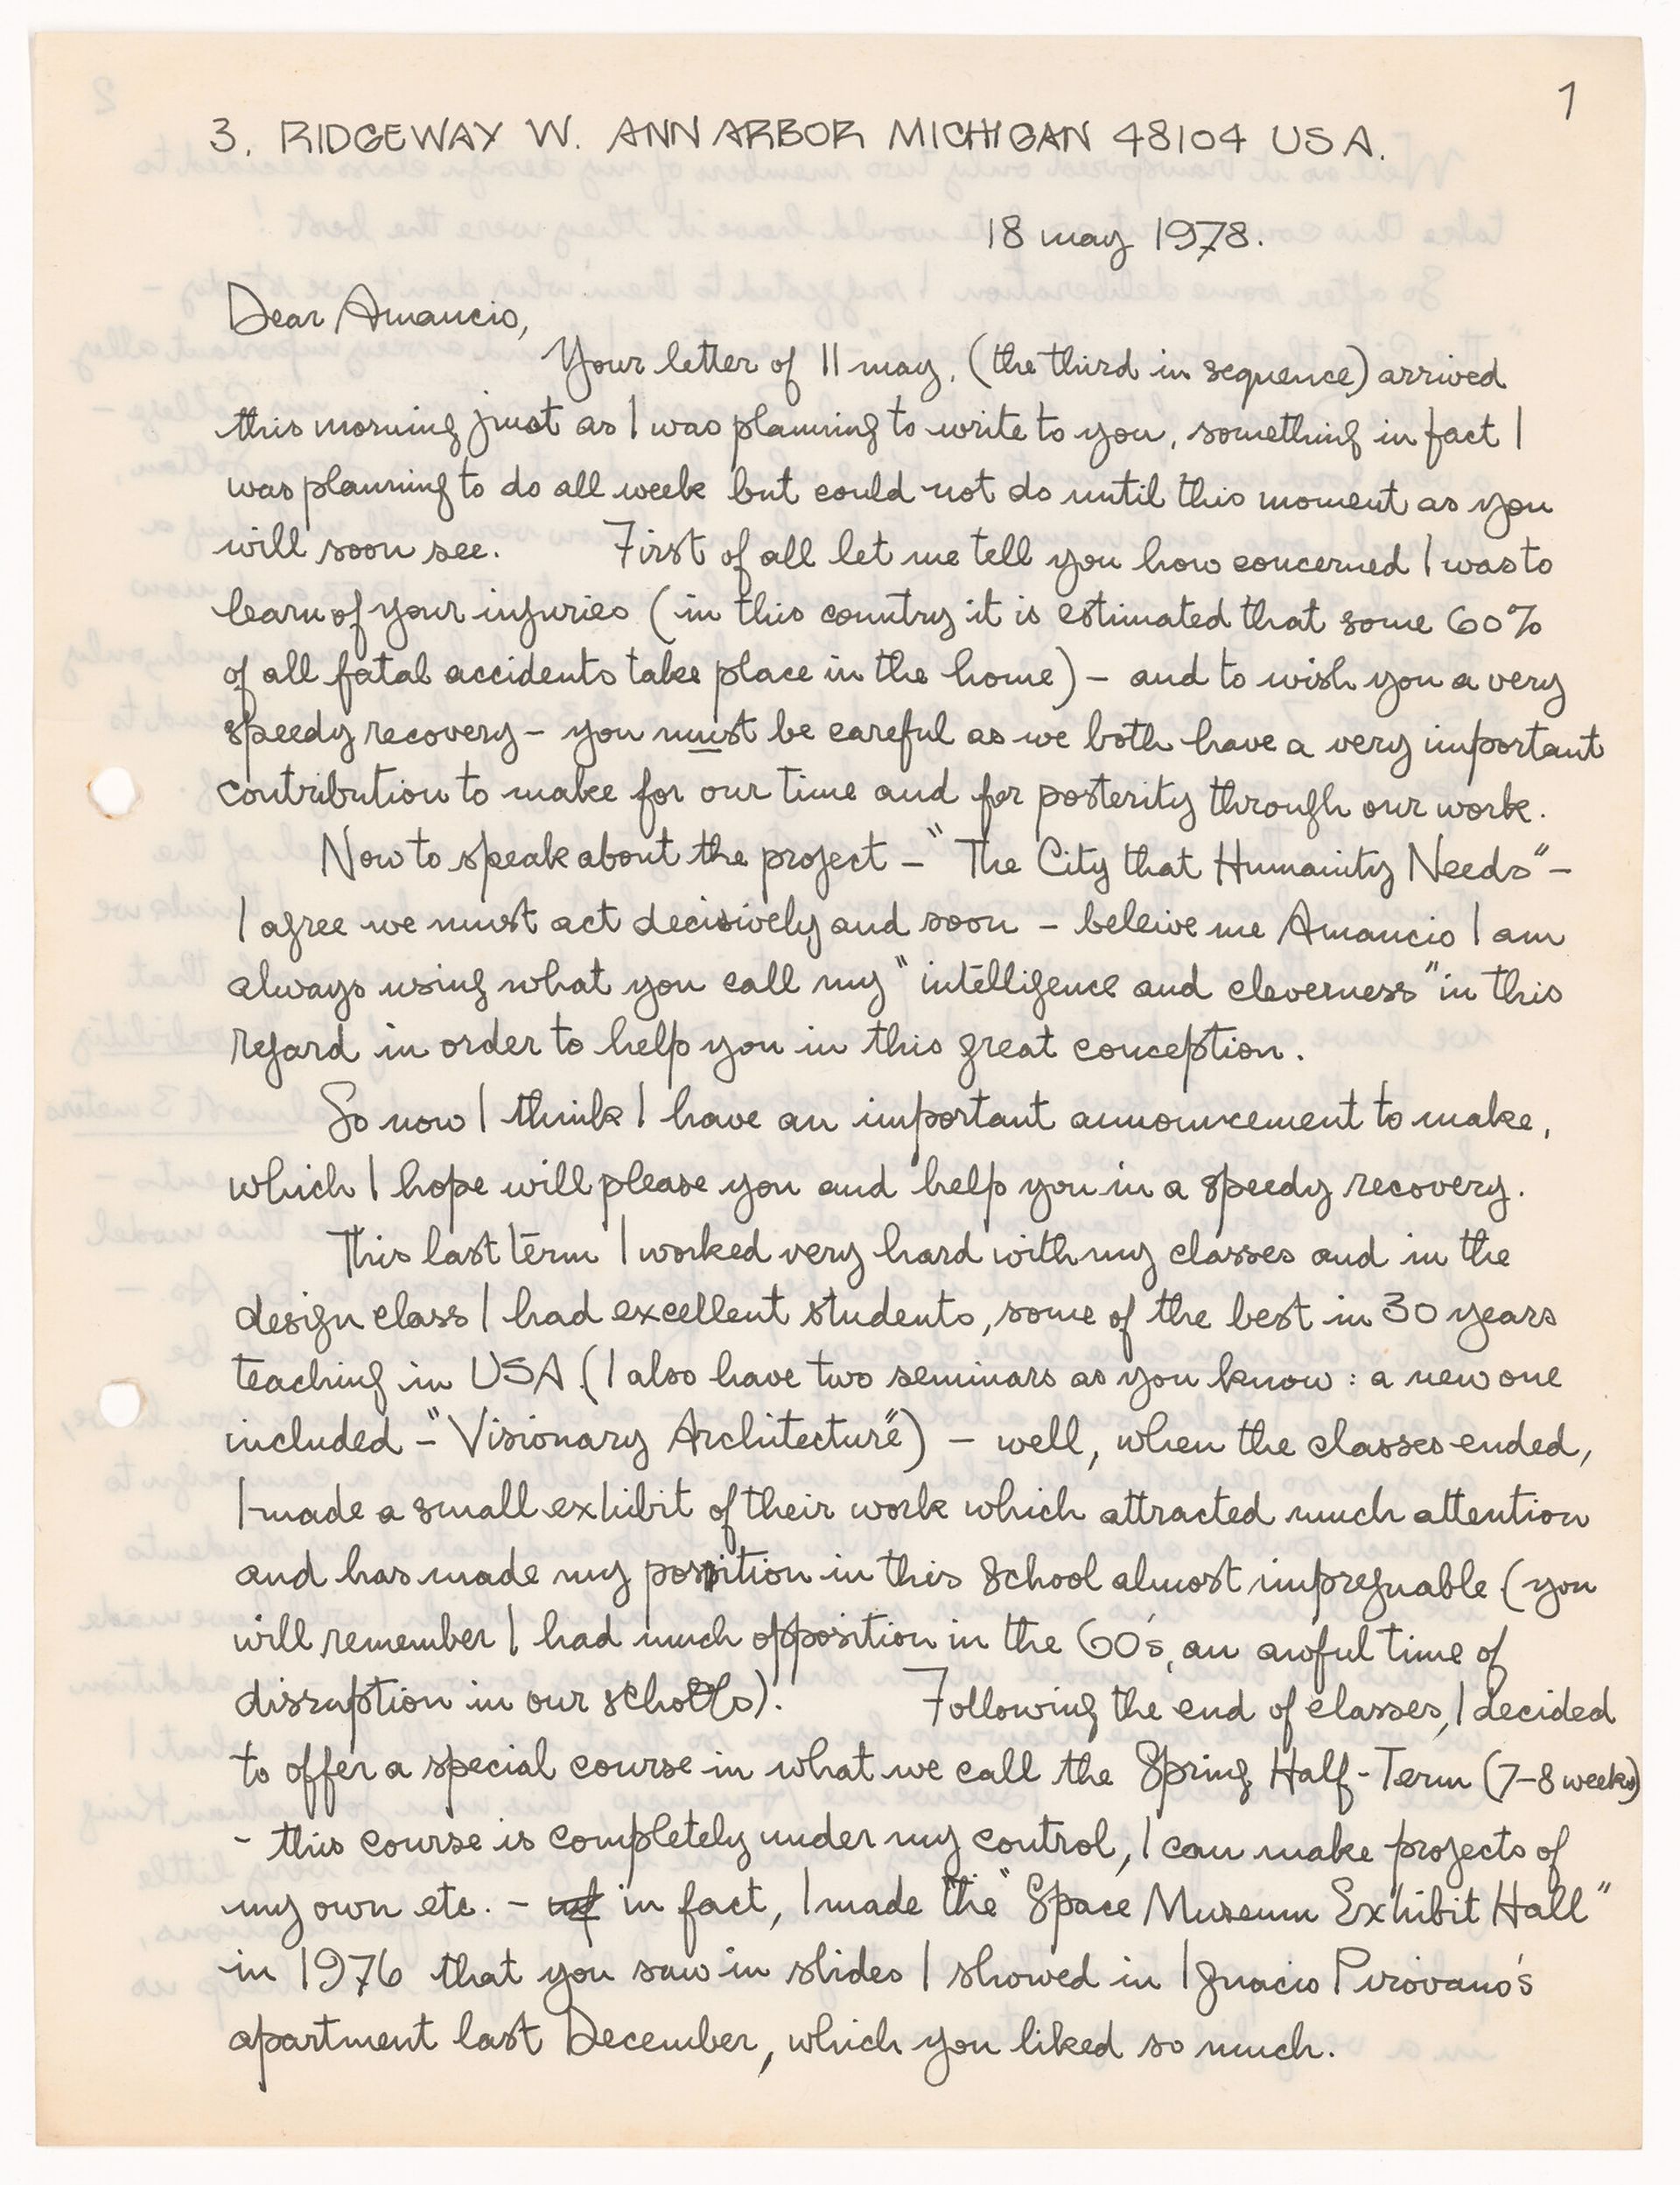 1
3. RIDGEWAY W. ANN ARBOR MICHIGAN 48104 USA.
18 may 1978.
Dear Amancio,
Your letter of 11 may, (the third in sequence) arrived
this morning just as I was planning to write to you, something in fact I
was planning to do all week but could not do until this moment as you
will soon see. First of all let me tell you how concerned I was to
learn of your injuries (in this country it is estimated that some 60%
of all fatal accidents take place in the home) – and to wish you a very
speedy recovery – you must be careful as we both have a very important
contribution to make for our time and for posterity through our work.
Now to speak about the project – "The City that Humanity Needs" –
I agree we must act decisively and soon – beleive me Amancio I am
always using what you call my "intelligence and cleverness" in this
regard in order to help you in this great conception.
So now I think I have an important announcement to make,
which I hope will please you and help you in a speedy recovery.
This last term I worked very hard with my classes and in the
design class I had excellent students, some of the best in 30 years
teaching in USA (I also have two seminars as you know: a new one
included – "Visionary Architecture") – well, when the classes ended,
I made a small exhibit of their work which attracted much attention
and has made my position in this school almost impregnable (you
will remember I had much opposition in the 60's, an awful time of
disruption in our schools). Following the end of classes, I decided
to offer a special course in what we call the Spring Half-Term (7–8 weeks)
– this course is completely under my control, I can make projects of
my own etc. – in fact, I made "the "Space Museum Exhibit Hall"
in 1976 that you saw in slides I showed in Ignacio Pirovano's
apartment last December, which you liked so much.